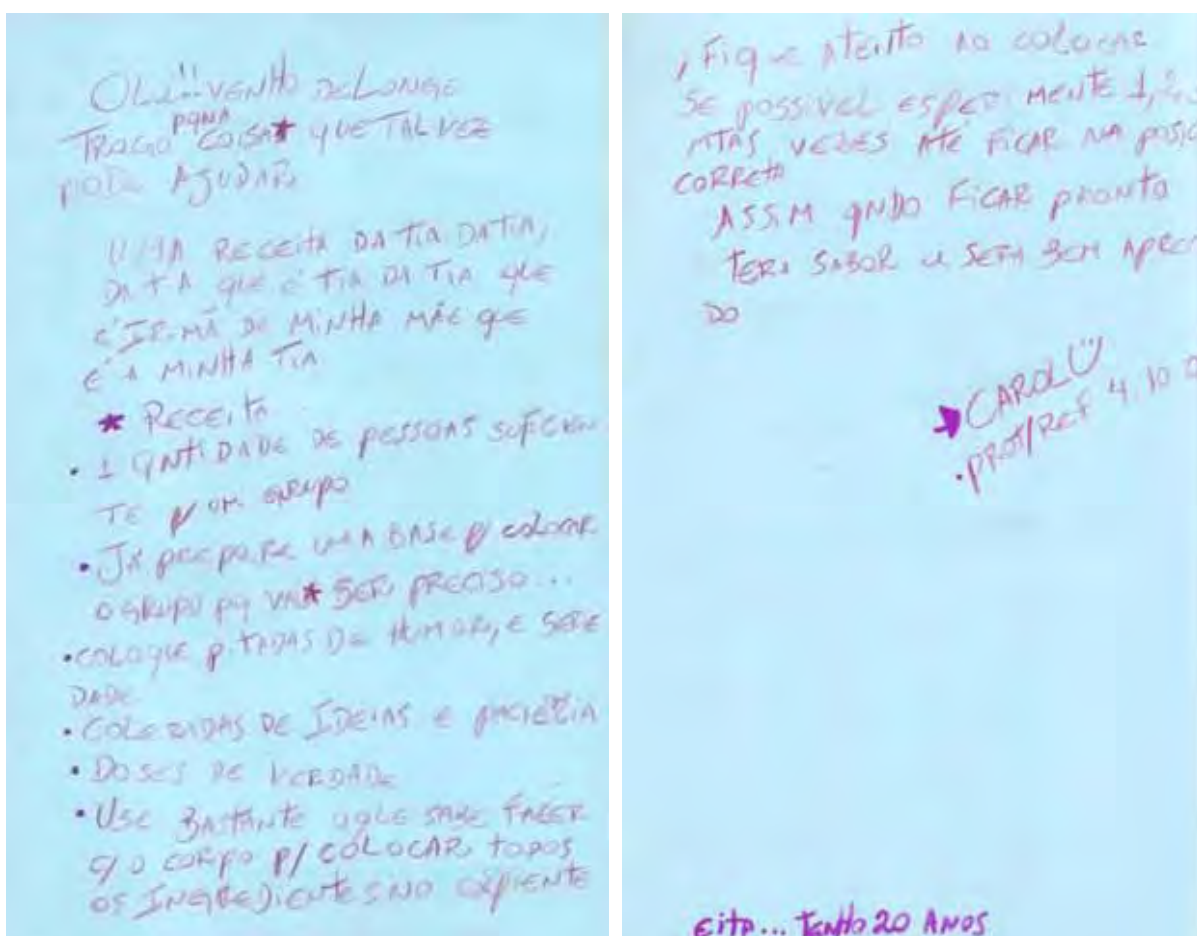 OLÁ!! VENHO DE LONGE
TRAGO PARA COISA* QUE TALVEZ
PODE AJUDAR
UMA RECEITA DA TIA DA TIA,
DA TIA QUE É TIA DA TIA QUE
É IRMÃ DE MINHA MÃE QUE
É A MINHA TIA
* RECEITA
• 1 QNTIDADE DE PESSOAS SUFICIEN
TE P/ UM GRUPO
• JÁ PREPARE UMA BASE P/ COLOCAR
O GRUPO PQ VAI* SER PRECISO...
• COLOQUE PITADAS DE HUMOR, E SERE
DADE
• COLERADAS DE IDEIAS E
• DOSES DE VERDADE
• USE BASTANTE O QUE SABE FAZER
C/ O CORPO P/ COLOCAR TODOS
OS INGREDIENTES NO
, FIQUE ATENTO AO COLOCAR
SE POSSIVEL ESPERIMENTE 1, 2,
MTAS VEZES ATÉ FICAR NA POSIC
CORRETA
ASSIM QNDO FICAR PRONTO
TERA SABOR E SERA BEM APREC
DO
CAROL
• PROT/REF 4. 10
EITA... TENHO 20 ANOS